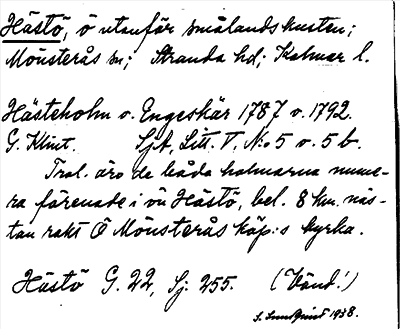 Hästö, ö utanför smålandskusten;
Mönsterås sn; Stranda hd; Kalmar l.
Hästeholm o. Engeskär 1787 o. 1792.
G. Klint. SjA, Litt. V, No 5 o. 5 b.
Trol. äro de båda holmarna nume-
ra förenade i ön Hästö, bel. 8 km. näs-
tan rakt Ö Mönsterås köp:s kyrka.
Hästö G. 22, Sj: 255. (Vänd!)
S. Lundquist 1938.